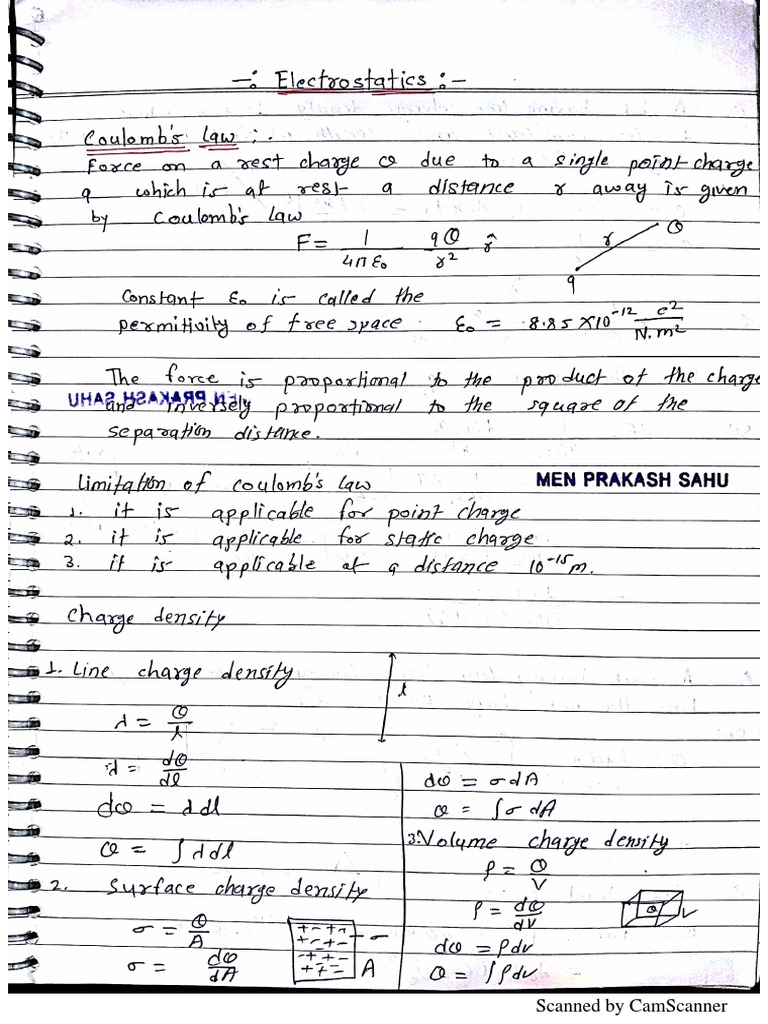 -: Electrostatics :-
Coulomb's Law :-
Force on a rest charge Q due to a single point charge
q which is at rest a distance r away is given
by Coulomb's Law
F = 1/4πε₀ qQ/r² r̂
r
Q
q
Constant ε₀ is called the
permitivity of free space ε₀ = 8.85 × 10⁻¹² c²/N.m²
The force is proportional to the product of the charge
MEN PRAKASH SAHU
and inversely proportional to the square of the
separation distance.
Limitation of coulomb's law
MEN PRAKASH SAHU
1. it is applicable for point charge
2. it is applicable for static charge
3. it is applicable at a distance 10⁻¹⁵ m.
Charge density
1. Line charge density
l
λ = Q/l
λ = dQ/dl
dQ = λ dl
Q = ∫ λ dl
2. Surface charge density
σ = Q/A
σ = dQ/dA
σ
A
dQ = σ dA
Q = ∫ σ dA
3. Volume charge density
ρ = Q/V
ρ = dQ/dV
Q
V
dQ = ρ dv
Q = ∫ ρ dv
Scanned by CamScanner